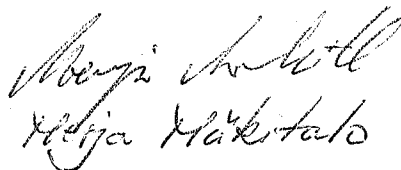 Merja Mäkitalo
Merja Mäkitalo